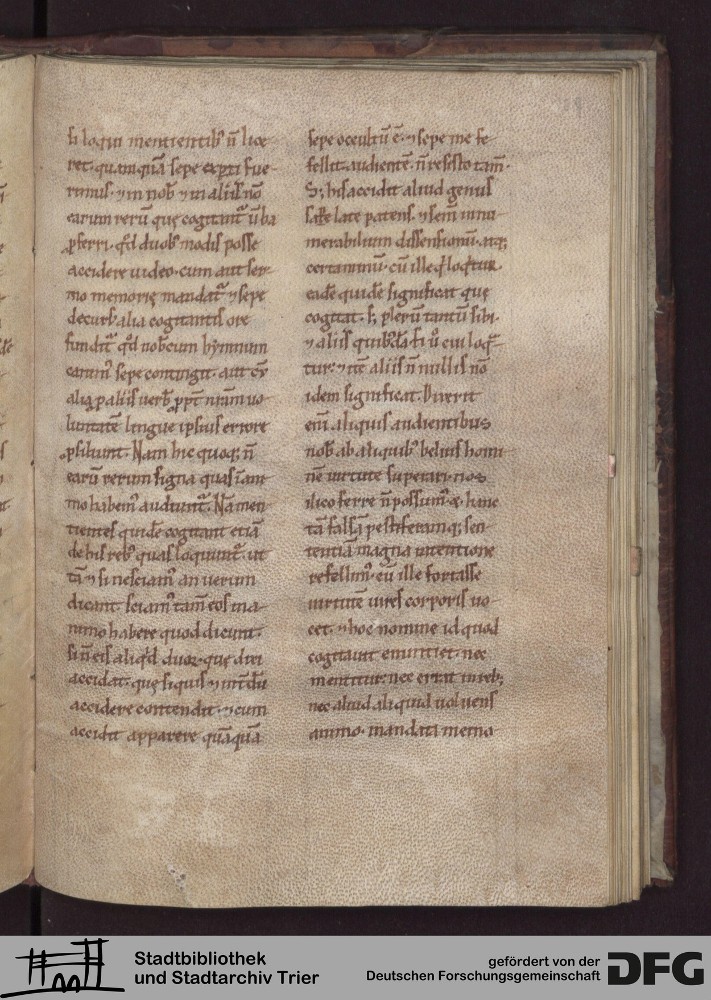 si loqui mentientib; n̄ lice-
ret. quamquā sepe exp̄ti fue-
rimus. ⁊ in nob̄ ⁊ in aliis nō
earum rerū quę cogitant᷑ ūba
ꝓferri. qd̄ duob; modis posse
accidere uideo. cum aut ser-
mo memorię mandat᷑ ⁊ sepe
decurs᷑ alia cogitantis ore
fundit᷑ qd̄ nobcum hymnum
canim᷒ sepe contingit. aut
aliis uerb̄ ppt̄ nr̄am uo-
luntatē lingue ipsius errore
ꝓsiliunt. Nam hic quoq; n̄
earū rerum signa quas in ani-
mo habem᷒ audiunt᷑. Nā men-
tientes quidē cogitant etiā
de his reb; quas loquunt᷑. ut
tā ⁊ si nesciam᷒ an uerum
dicant. sciam᷒ tam̄ eos in a-
nimo habere quod dicunt.
si n̄ eis aliqd̄ duoꝝ quę dixi
accidat. quę siquis ⁊ int̄dū
accidere contendit. ⁊ cum
accidit apparere quāquā
sepe occultū ē. ⁊ sepe me fe-
fellit. audientē. n̄ resisto tam̄.
S; his accidit aliud genus
sane late patens. ⁊ sem̄ innu-
merabilium dissensionū. atq;
certaminū. cū ille q̄ loqt᷑ur.
eadē quidē significat quę
cogitat. s; plerū tantū sibi
⁊ aliis quibdā. ū cui loq̄-
tur. ⁊ itē aliis n̄ nullis nō
idem significat. Dixerit
em̄ aliquis audientibus
nob̄ ab aliquib; beluis homi-
nē uirtute superari. nos
ilico ferre n̄ possum᷒. & hanc
tā falsā pestiferamq; sen-
tentiā magna intentione
refellim᷒. cū ille fortasse
uirtutē uires corporis uo-
cet. ⁊ hoc nomine id quod
cogitauit enuntiet. nec
mentitur. nec errat in reb;
nec aliud aliquid uoluens
animo. mandata memo
Stadtbibliothek
und Stadtarchiv Trier
gefördert von der
Deutschen Forschungsgemeinschaft
DFG